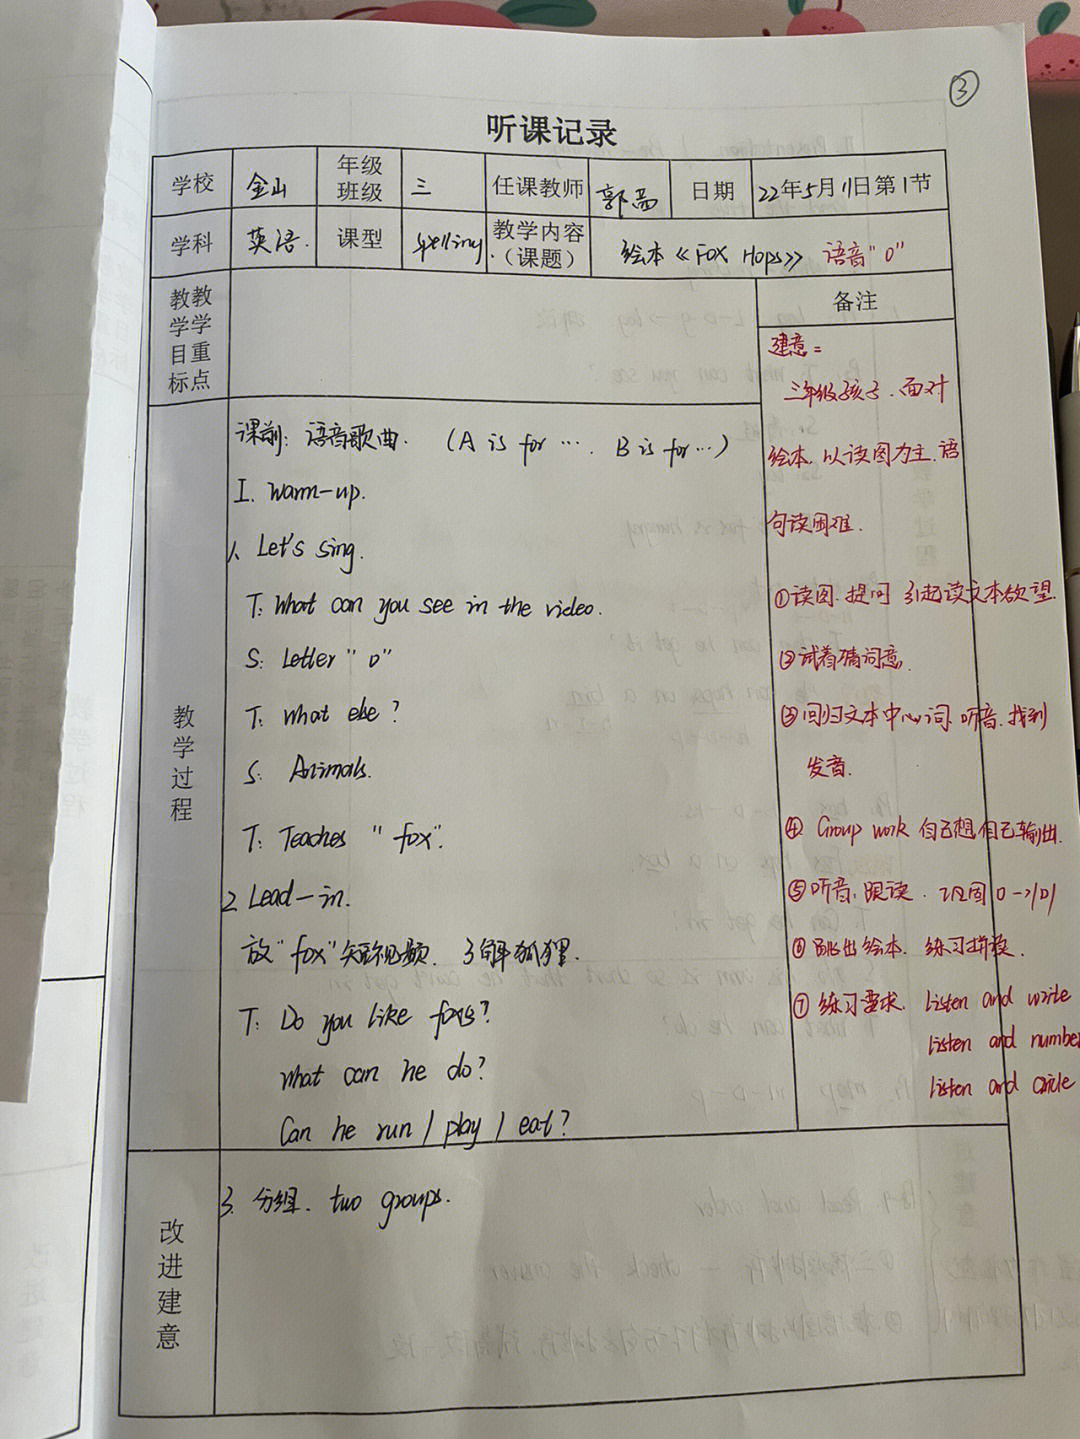 ③
听课记录
学校 金山 年级班级 三 任课教师 郭 日期 22年5月11日第1节
学科 英语. 课型 spelling 教学内容(课题) 绘本《Fox Hops》 语音"o"
教学目标 教学重点
备注
建意:
三年级孩子.面对
绘本.以读图为主.语
句读困难.
①读图.提问 引起读文本欲望.
②试着猜词意.
③回归文本中心词.听音.找到
发音.
④ Group work 自己想自己输出.
⑤听音,跟读. 巩固 o→/ɒ/
⑥跳出绘本. 练习拼读.
⑦练习要求. listen and write
listen and number
listen and circle
教学过程
课前: 语音歌曲. (A is for …. B is for …)
I. Warm-up.
1. Let's sing.
T: What can you see in the video.
S: Letter "o"
T: What else?
S: Animals.
T: Teaches "fox".
2. Lead-in.
放"fox"短视频. 了解狐狸.
T: Do you like foxes?
What can he do?
Can he run / play / eat?
改进建意
3. 分组. two groups.